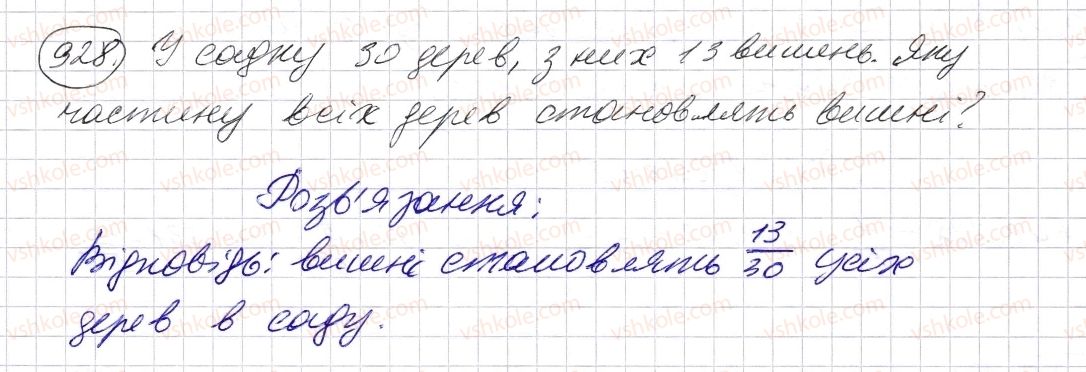 928. У садку 30 дерев, з них 13 вишень. Яку
частину всіх дерев становлять вишні?
Розв'язання:
Відповідь: вишні становлять 13/30 усіх
дерев в саду.